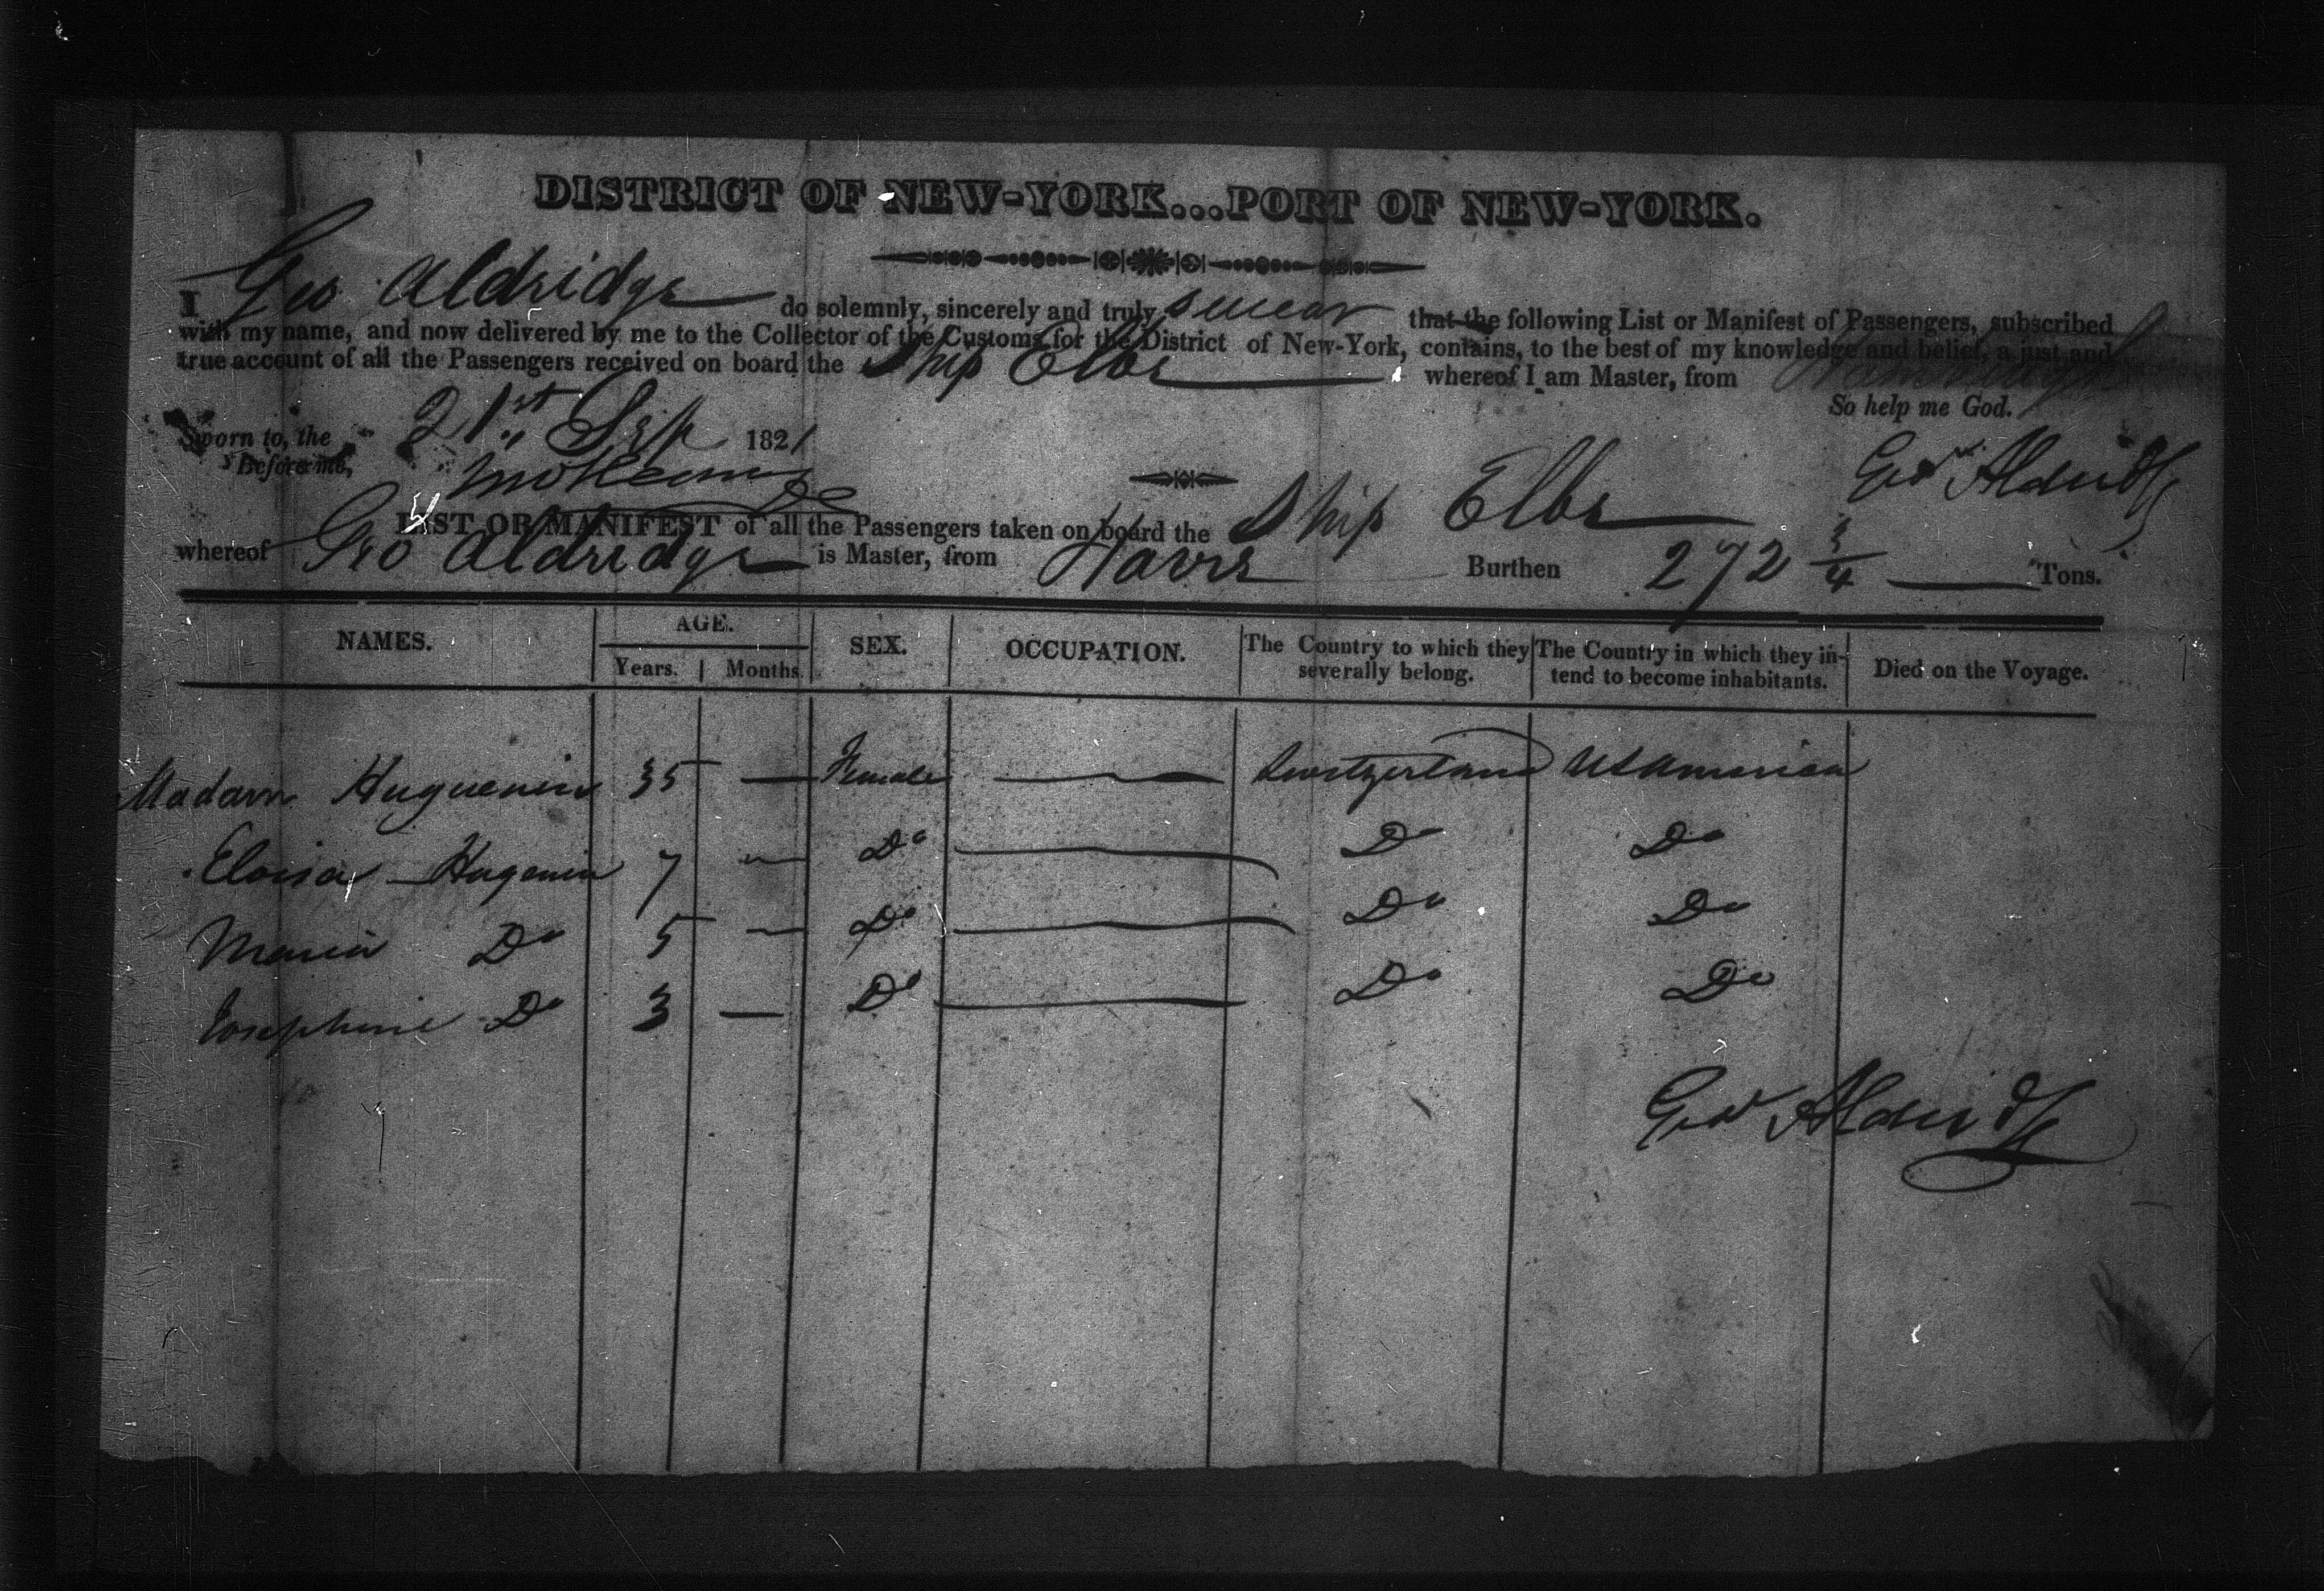 DISTRICT OF NEW-YORK...PORT OF NEW-YORK.
I Geo Aldridge do solemnly, sincerely and truly swear that the following List or Manifest of Passengers, subscribed
with my name, and now delivered by me to the Collector of the Customs for the District of New-York, contains, to the best of my knowledge and belief, a just and
true account of all the Passengers received on board the Ship Elbe whereof I am Master, from
So help me God.
Sworn to, the 21st Sep 1821
Before me,
Geo Aldridge
LIST OR MANIFEST of all the Passengers taken on board the Ship Elbe
whereof Geo Aldridge is Master, from Havre Burthen 272 3/4 Tons.
NAMES. AGE. Years. Months. SEX. OCCUPATION. The Country to which they severally belong. The Country in which they intend to become inhabitants. Died on the Voyage.
Madam Huguenin 35 — Female — Switzerland US America
Eloisa Hugenin 7 — Do — Do Do
Maria Do 5 — Do — Do Do
Josephine Do 3 — Do — Do Do
Geo Aldridge